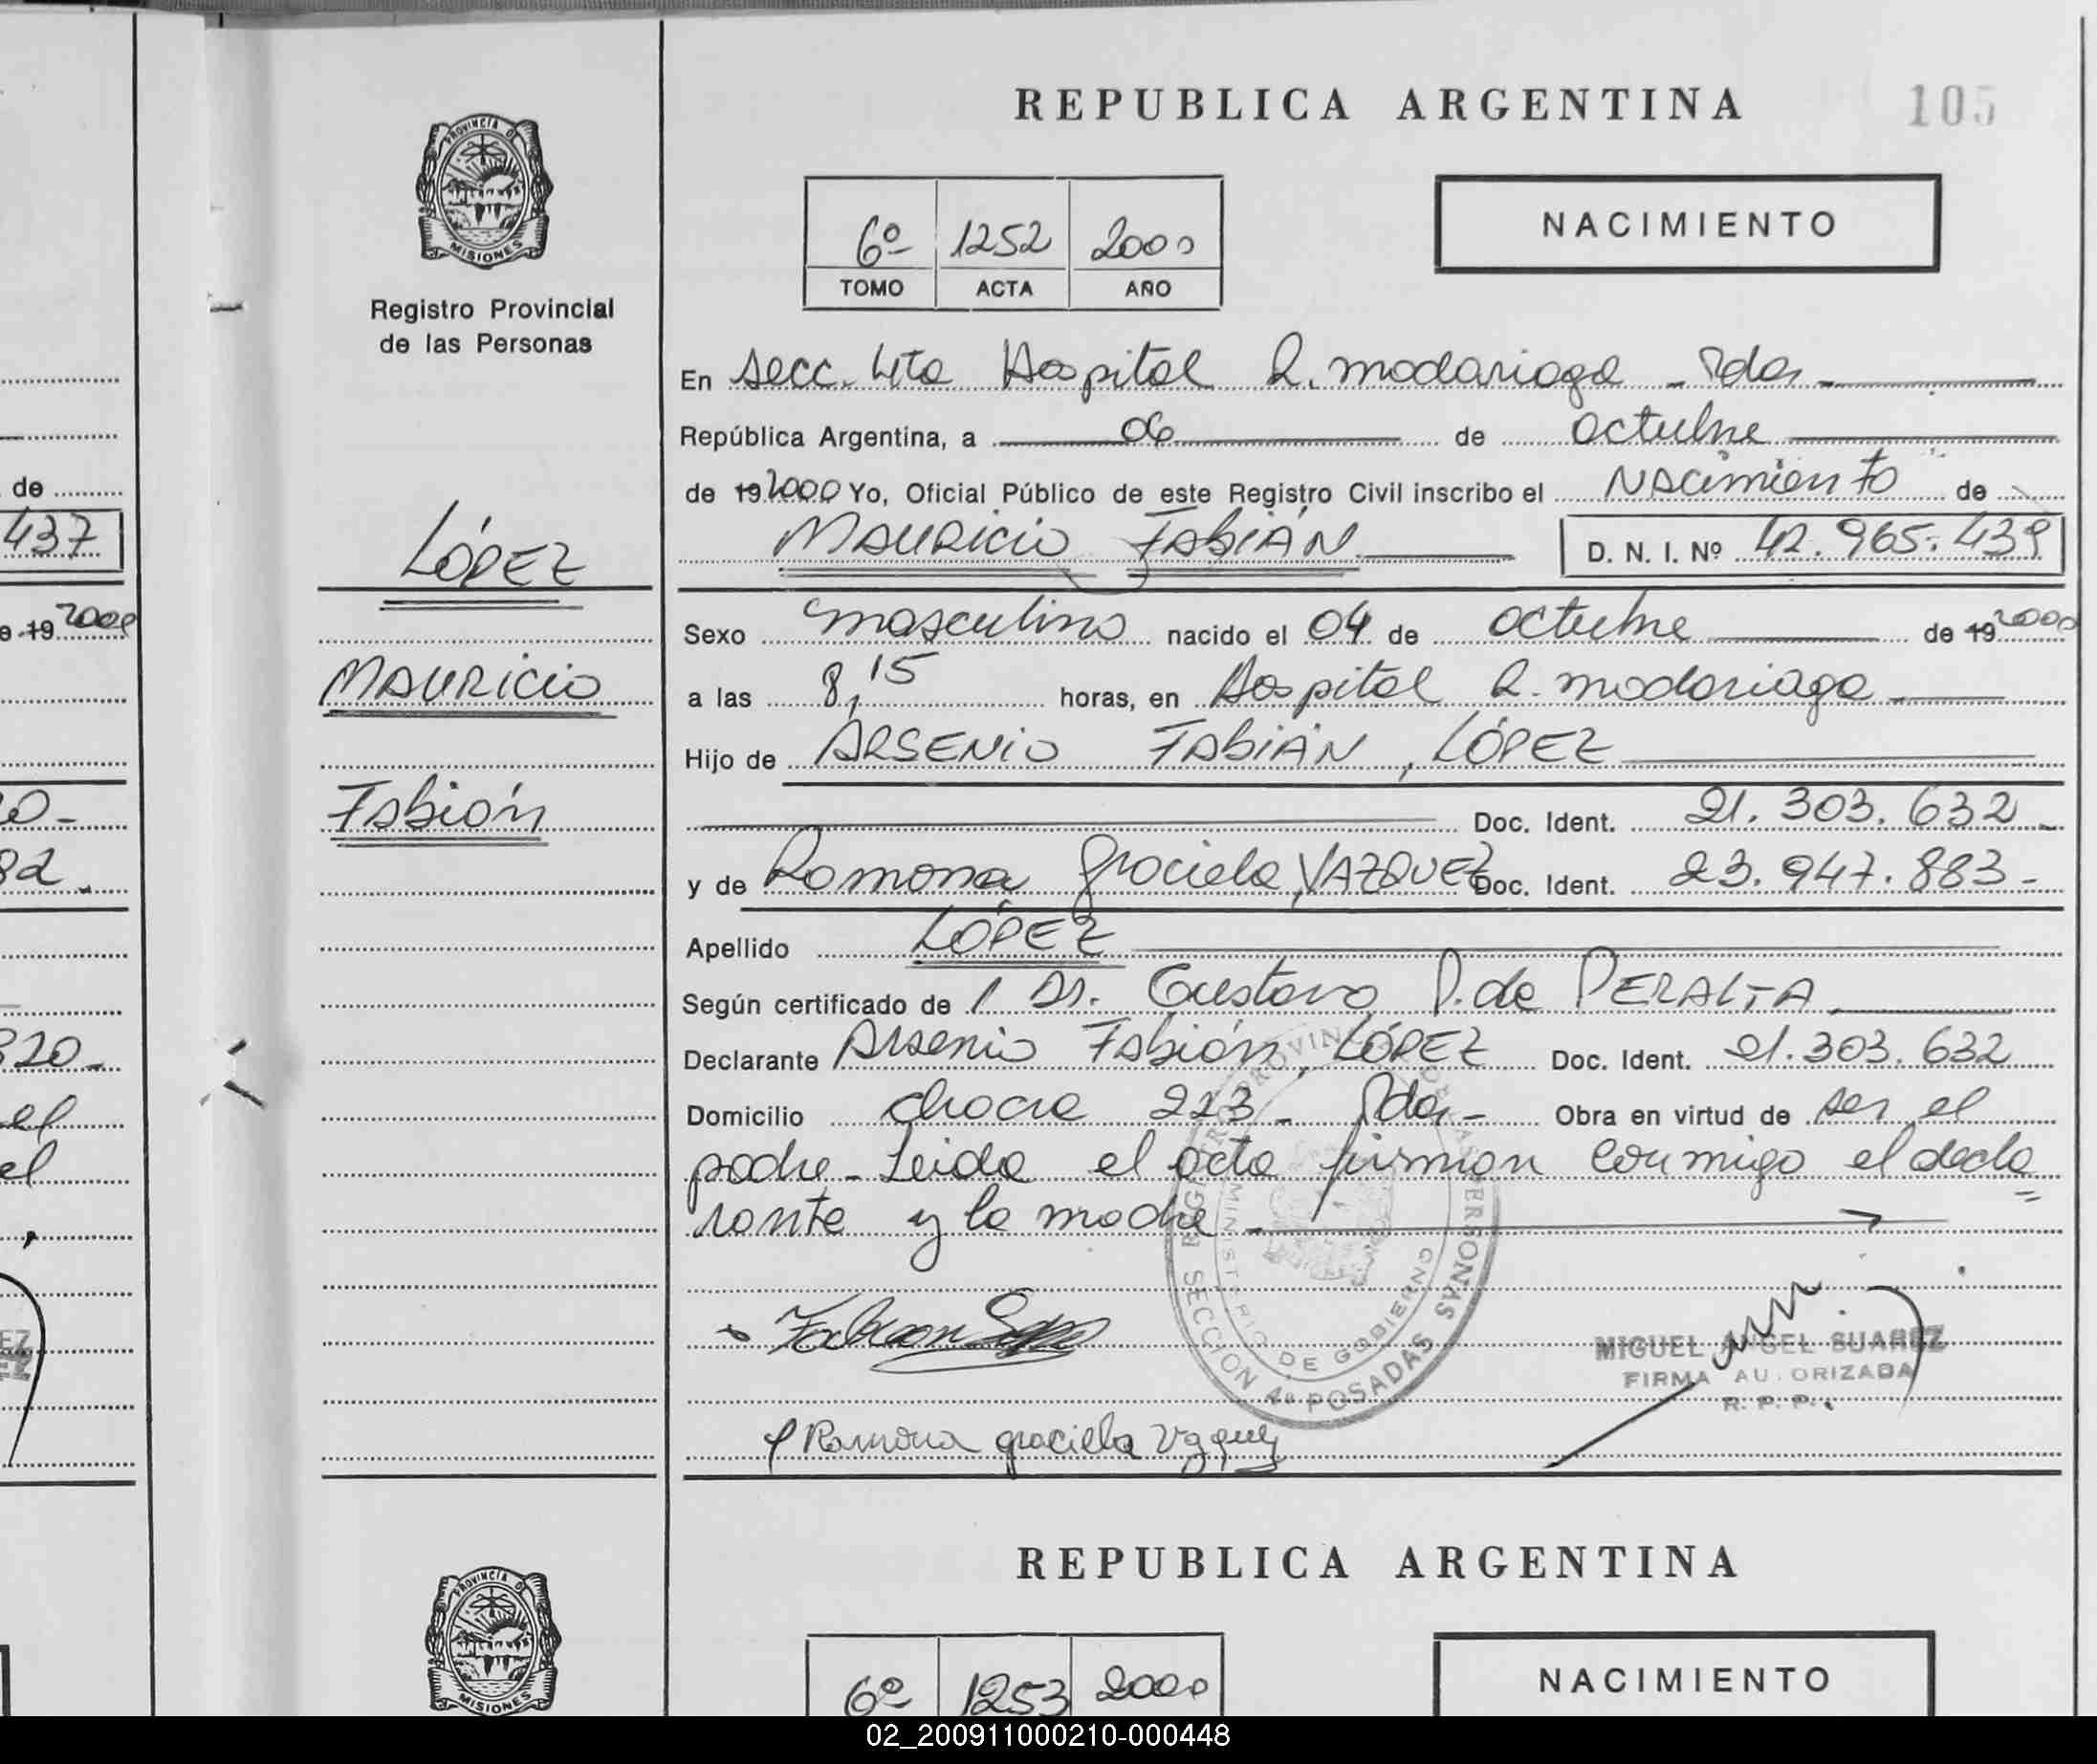 REPUBLICA ARGENTINA
105
PROVINCIA DE
MISIONES
Registro Provincial
de las Personas
6º 1252 2000
TOMO ACTA AÑO
NACIMIENTO
LÓPEZ
Mauricio
Fabián
En Secc. 4ta Hospital R. Madariaga - Pdas -
República Argentina, a 06 de octubre
de 192000 Yo, Oficial Público de este Registro Civil inscribo el Nacimiento de
Mauricio Fabián D. N. I. Nº 42.965.439
Sexo masculino nacido el 04 de octubre de 192000
a las 8,15 horas, en Hospital R. Madariaga
Hijo de Arsenio Fabián, LÓPEZ
Doc. Ident. 21.303.632
y de Ramona Graciela, VAZQUEZ Doc. Ident. 23.947.883-
Apellido LÓPEZ
Según certificado de / Dr. Gustavo P. de PERALTA
Declarante Arsenio Fabián, LÓPEZ Doc. Ident. 21.303.632
Domicilio chacra 213 - Pdas - Obra en virtud de ser el
padre - Leida el acta firman conmigo el decla
rante y la madre -
Fabian Lopez
Ramona graciela Vazquez
MIGUEL ANGEL SUAREZ
FIRMA AU.ORIZADA
R. P. P.
MINISTERIO DE GOBIERNO
SECCION 4ª POSADAS
de
437
e 19 2000
82.
320-
el
el
REPUBLICA ARGENTINA
PROVINCIA DE
MISIONES
6º 1253 2000
NACIMIENTO
02_200911000210-000448